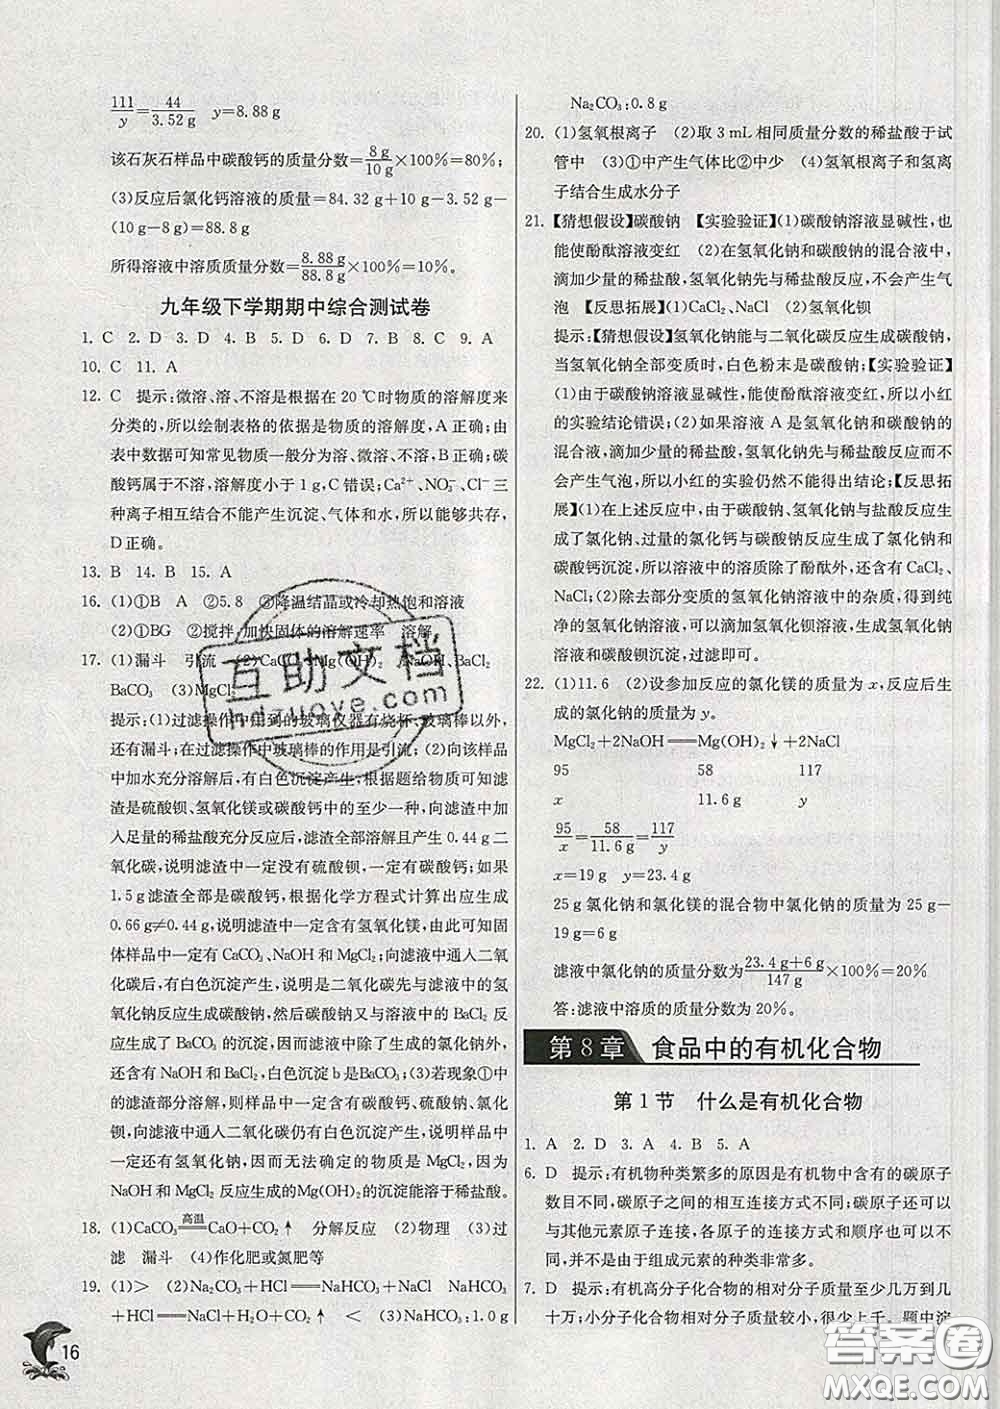 111/y=44/3.52 g　y=8.88 g
该石灰石样品中碳酸钙的质量分数=8 g/10 g×100%=80%;
(3)反应后氯化钙溶液的质量=84.32 g+10 g-3.52 g-
(10 g-8 g)=88.8 g
所得溶液中溶质质量分数=8.88 g/88.8 g×100%=10%。
九年级下学期期中综合测试卷
1. C　2. D　3. D　4. B　5. D　6. D　7. B　8. C　9. A
10. C　11. A
12. C　提示:微溶、溶、不溶是根据在 20 ℃时物质的溶解度来
分类的,所以绘制表格的依据是物质的溶解度,A正确;由
表中数据可知常见物质一般分为溶、微溶、不溶,B正确;碳
酸钙属于不溶,溶解度小于1 g,C错误;Ca²⁺、NO₃⁻、Cl⁻三
种离子相互结合不能产生沉淀、气体和水,所以能够共存,
D正确。
13. B　14. B　15. A
16. (1)①B　A　②5.8　③降温结晶或冷却热饱和溶液
(2)①BG　②搅拌,加快固体的溶解速率　溶解
17. (1)漏斗　引流　(2)CaCO₃、Mg(OH)₂　NaOH、BaCl₂
BaCO₃　(3)MgCl₂
提示:(1)过滤操作中用到的玻璃仪器有烧杯、玻璃棒以外,
还有漏斗;在过滤操作中玻璃棒的作用是引流;(2)向该样品
中加水充分溶解后,有白色沉淀产生,根据题给物质可知滤
渣是硫酸钡、氢氧化镁或碳酸钙中的至少一种,向滤渣中加
入足量的稀盐酸充分反应后,滤渣全部溶解且产生0.44 g二
氧化碳,说明滤渣中一定没有硫酸钡,一定有碳酸钙;如果
1.5 g滤渣全部是碳酸钙,根据化学方程式计算出应生成
0.66 g≠0.44 g,说明滤渣中一定含有氢氧化镁,由此可知固
体样品中一定有CaCO₃、NaOH和MgCl₂;向滤液中通人二氧
化碳后,有白色沉淀产生,说明是二氧化碳先与滤液中的氢
氧化钠反应生成碳酸钠,然后碳酸钠又与溶液中的BaCl₂反
应生成了BaCO₃的沉淀,因而滤液中一定有过量的NaOH
和BaCl₂,白色沉淀b是BaCO₃;(3)若现象①中的
滤渣部分溶解,则样品中一定含有硫酸钠、碳酸钙、氯化
钡,向滤液中通人二氧化碳仍有白色沉淀产生,说明样品中
还有氢氧化钠,因而无法确定的物质是MgCl₂,因为
BaSO₄的沉淀不能溶于稀盐酸,Mg(OH)₂的沉淀能溶于稀盐酸。
18. (1)CaCO₃ 高温 CaO+CO₂↑　分解反应　(2)物理　(3)过
滤　漏斗　(4)作化肥或氮肥等
19. (1)>　(2)Na₂CO₃+HCl══NaHCO₃+NaCl　NaHCO₃
+HCl══NaCl+H₂O+CO₂↑　<　(3)NaHCO₃:1.0 g
16
Na₂CO₃:0.8 g
20. (1)氢氧根离子　(2)取 3 mL 相同质量分数的稀盐酸于试
管中　(3)①中产生气体比②中少　(4)氢氧根离子和氢离
子结合生成水分子
21. 【猜想假设】碳酸钠　【实验验证】(1)碳酸钠溶液显碱性,也
能使酚酞溶液变红　(2)在氢氧化钠和碳酸钠的混合液中,
滴加少量的稀盐酸,氢氧化钠先与稀盐酸反应,不会产生气
泡　【反思拓展】(1)CaCl₂、NaCl　(2)氢氧化钡
提示:【猜想假设】氢氧化钠能与二氧化碳反应生成碳酸钠,
当氢氧化钠全部变质时,白色粉末是碳酸钠;【实验验证】
(1)由于碳酸钠溶液显碱性,能使酚酞溶液变红,所以小红
的实验结论错误;(2)如果溶液 A 是氢氧化钠和碳酸钠的
混合液,滴加少量的稀盐酸,稀盐酸先与氢氧化钠反应而不
产生气泡,所以小红的实验仍然不能得出结论;【反思拓
展】(1)在上述反应中,盐酸与碳酸钠、氢氧化钠反应生
成了氯化钠、过量的氯化钙与碳酸钠反应生成了氯化钠和
碳酸钙沉淀,所以滤液中的溶质除了酚酞外,还含有 CaCl₂、
NaCl;(2)除去部分变质的氢氧化钠溶液中的杂质,得到纯
净的氢氧化钠溶液,可以滴加氢氧化钡溶液,生成氢氧化
钠和碳酸钡沉淀,过滤即可。
22. (1)11.6　(2)设参加反应的氯化镁的质量为 x,反应后生
成的氯化钠的质量为 y。
MgCl₂+2NaOH══Mg(OH)₂↓+2NaCl
95　58　117
x　11.6 g　y
95/x=58/11.6 g=117/y
x=19 g　y=23.4 g
25 g 氯化钠和氯化镁的混合物中氯化钠的质量为 25 g-
19 g=6 g
滤液中氯化钠的质量分数为(23.4 g+6 g)/147 g×100%=20%
答:滤液中溶质的质量分数为20%。
第 8 章　食品中的有机化合物
第 1 节　什么是有机化合物
1. A　2. D　3. A　4. B　5. A
6. D　提示:有机物种类繁多的原因是有机物中含有的碳原子
数目不同,碳原子之间的相互连接方式不同;碳原子还可以
与其他元素原子连接,各原子的连接方式和顺序也可以不
同,并不是由于组成元素的种类非常多。
7. D　提示:有机高分子化合物的相对分子质量至少几万到几
十万;小分子化合物相对分子质量较小,很少上千。题中淀
互助文档
hdzuoye.com
答案圈
MXQE.COM